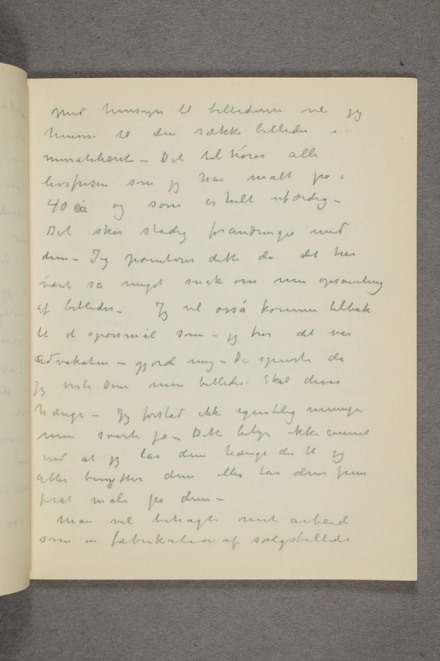 med hensyn til billederne vil jeg
henvise til den række billeder i
muratelieret – Det tilhører alle
livsfrisen som jeg har malt på i
40 år og som er helt uferdig –
Det sker stadig forandringer med
dem – Jeg påminder dette da det har
vært så meget snak om min opsamling
af billeder – Jeg vil også komme tilbak
til et spørsmål som – jeg tror det var
advokaten – gjord mig – De spurte da
jeg viste Dem mine billeder: Skal disse
hænge – Jeg forstod ikke egentlig meningen
men svarte ja – Dette betyr ikke annet
end at jeg lar dem hænge der til jeg
alter benytter dem eller tar dem frem
forat male på dem –
Man vil betragte mit arbeide
som en fabrikation af salgsbilleder